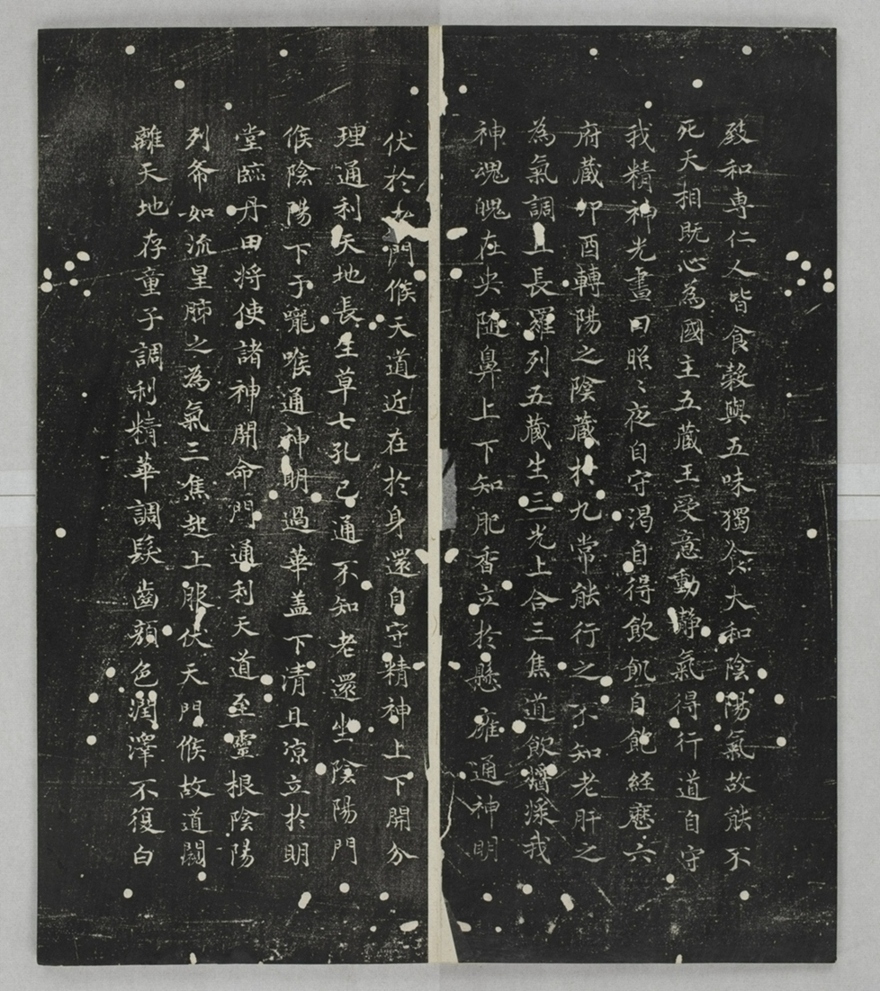 致和專仁人皆食穀與五味獨食大和陰陽氣故能不
死天相既心為國主五藏王受意動靜氣得行道自守
我精神光晝日照〻夜自守渴自得飲飢自飽經歷六
府藏卯酉轉陽之陰藏於九常能行之不知老肝之
為氣調且長羅列五藏生三光上合三焦道飲醬漿我
神魂魄在央隨鼻上下知肥香立於懸雍通神明
伏於老門候天道近在於身還自守精神上下開分
理通利天地長生草七孔已通不知老還坐陰陽門
候陰陽下于嚨喉通神明過華盖下清且涼立於明
堂臨丹田將使諸神開命門通利天道至靈根陰陽
列布如流星肺之為氣三焦起上服伏天門候故道闚
離天地存童子調利精華調髮齒顏色潤澤不復白